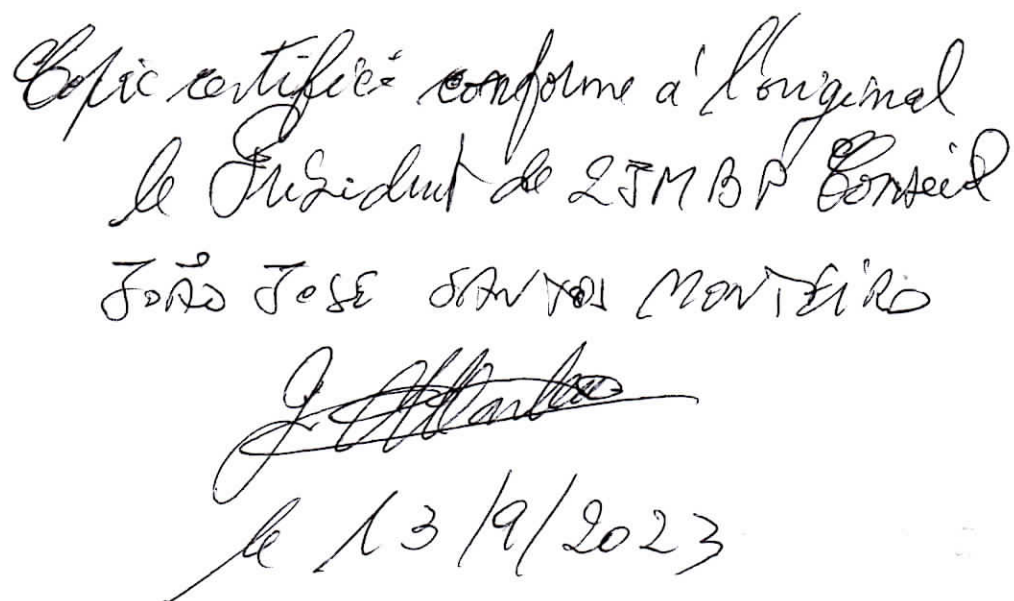 Copie certifiée conforme à l'original
le Président de 2JMBP Conseil
JOÃO JOSE SANTOS MONTEIRO
le 13/9/2023